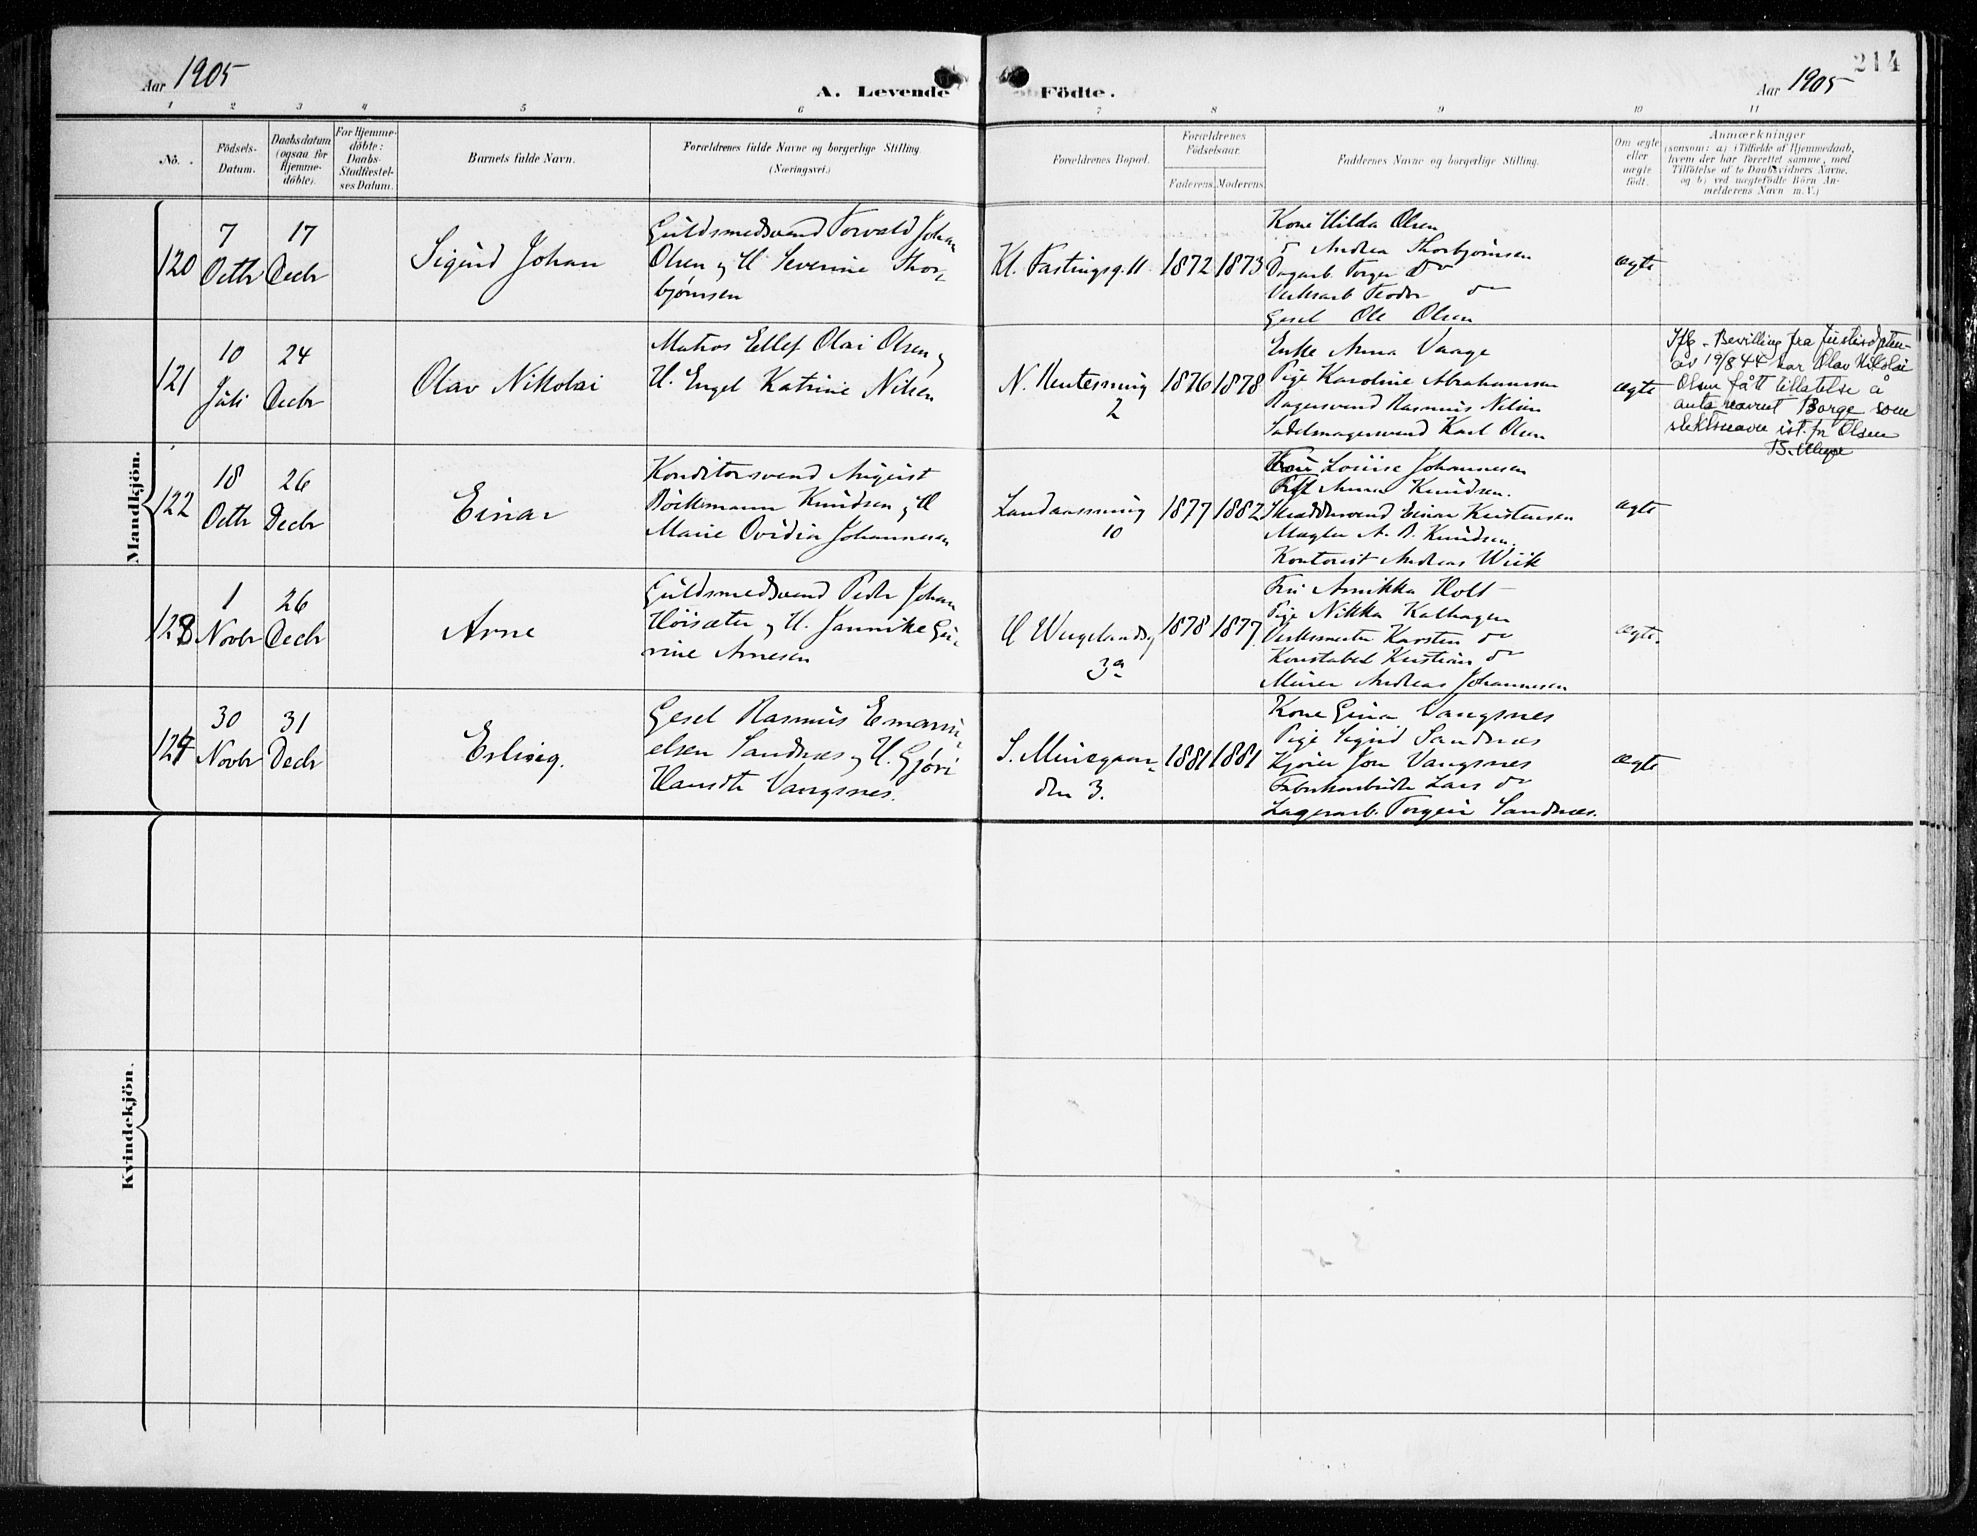 Aar 1905
A. Levende Födte.
Aar 1905
214
1 2 3 4 5 6 7 8 9 10 11
No.
Födsels-
Datum.
Daabsdatum
(ogsaa for
Hjemme-
döbte).
For Hjemme-
döbte:
Daabs-
Stadfæstel-
ses Datum.
Barnets fulde Navn.
Forældrenes fulde Navne og borgerlige Stilling.
(Næringsvei.)
Forældrenes Bopæl.
Forældrenes
Födselsaar.
Faderens. Moderens.
Faddernes Navne og borgerlige Stilling.
Om ægte
eller
uægte
födt.
Anmærkninger
(saasom: a) i Tilfælde af Hjemmedaab,
hvem der har forrettet samme, med
Tilföielse af to Daabsvidners Navne.
og b) ved uægtefödte Börn An-
melderens Navn m. V.)
Mandkjön.
120
7
Octbr
17
Decbr
Sigurd Johan
Guldsmedsvend Torvald Johan
Olsen og H. Severine Thor-
bjørnsen
Kl. Fastingsg. 11
1872
1873
Kone Hilda Olsen
do Andrea Thorbjørnsen
Dagarb Torger do
Verksarb Teodor do
Gesel Ole Olsen
ægte
121
10
Juli
24
Decbr
Olav Nikolai
Matros Ellef Olai Olsen og
H. Engel Katrine Nilsen
N. Nutesmug
2
1876
1878
Enke Anna Vaage
Pige Karoline Abrahamsen
Bagersvend Rasmus Nilsen
Sadelmagersvend Karl Olsen
ægte
Iflg. Bevilling fra Justisdpten-
av 19/8 44 har Olav Nikolai
Olsen fått tillatelse å
anta navnet Borge som
slektsnavn ist. for Olsen
122
18
Octbr
26
Decbr
Einar
Konditorsvend August
Böckmann Knudsen og H
Marie Ovidia Johannesen
Landaassmug
10
1877
1882
Fru Louise Johannesen
Frk Anna Knudsen.
Skræddersvend Einar Kristensen
Mægler A. B. Knudsen.
Kontorist Andreas Wiik
ægte
123
1
Novbr
26
Decbr
Arne
Guldsmedsvend Peder Johan
Höisæter og H. Jannike Gu-
rine Arnesen
H Wergelandsg
3a
1878
1877
Fru Annikka Holt
Pige Nikka Kalhagen
Verksmester Karsten do
Konstabel Kristian do
Murer Andreas Johannesen
ægte.
124
30
Novbr
31
Decbr
Erling.
Gesel Rasmus Emanu-
elsen Sandnæs og H. Gjøri
Hansdtr Vangsnes.
S. Muregaar-
den 3.
1881
1881
Kone Gina Vangsnes
Pige Sigrid Sandnæs
Kjører Jon Vangsnes
Fabrikarbeider Lars do
Lagerarb. Torgeir Sandnæs.
ægte
Kvindekjön.